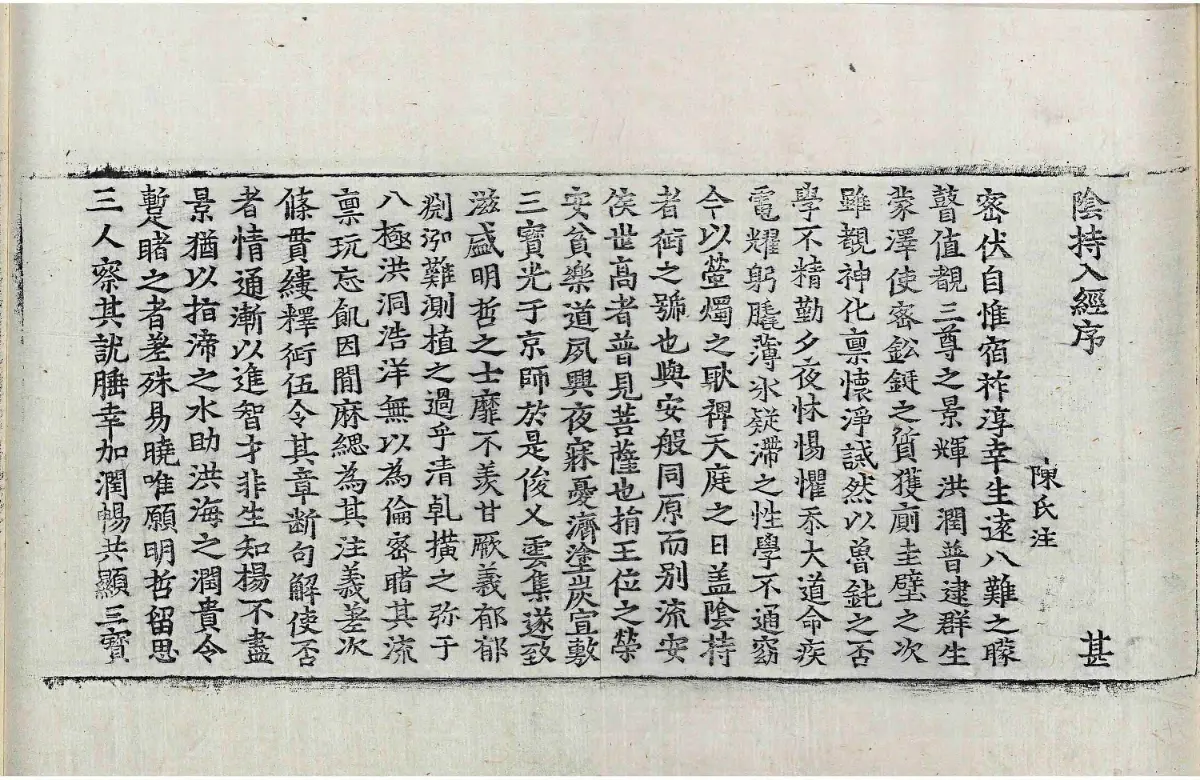 陰持入經序 甚
陳氏注
密伏自惟宿祚淳幸生逺八難之矇
瞽值覩三尊之景輝洪潤普逮群生
蒙澤使密鈆鋌之質獲廁圭璧之次
雖覩神化禀懷淨誡然以魯鈍之否
學不精勤夕夜怵惕懼忝大道命疾
電耀躬膬薄氷疑滯之性學不通窈
今以螢燭之耿裨天庭之日盖陰持
者衍之號也與安般同原而別流安
侯世高者普見菩薩也捐王位之榮
安貧樂道夙興夜寐憂濟塗炭宣敷
三寶光于京師於是俊乂雲集遂致
滋盛明哲之士靡不羨甘厥義郁郁
渕泓難測植之過乎清乹擴之弥于
八極洪洞浩洋無以為倫密睹其流
禀玩忘飢因閒麻緦為其注義差次
條貫縷釋衍伍令其章断句解使否
者情通漸以進智才非生知揚不盡
景猶以指渧之水助洪海之潤貴令
蹔睹之者差殊易曉唯願明哲留思
三人察其訧膬幸加潤暢共顯三寶